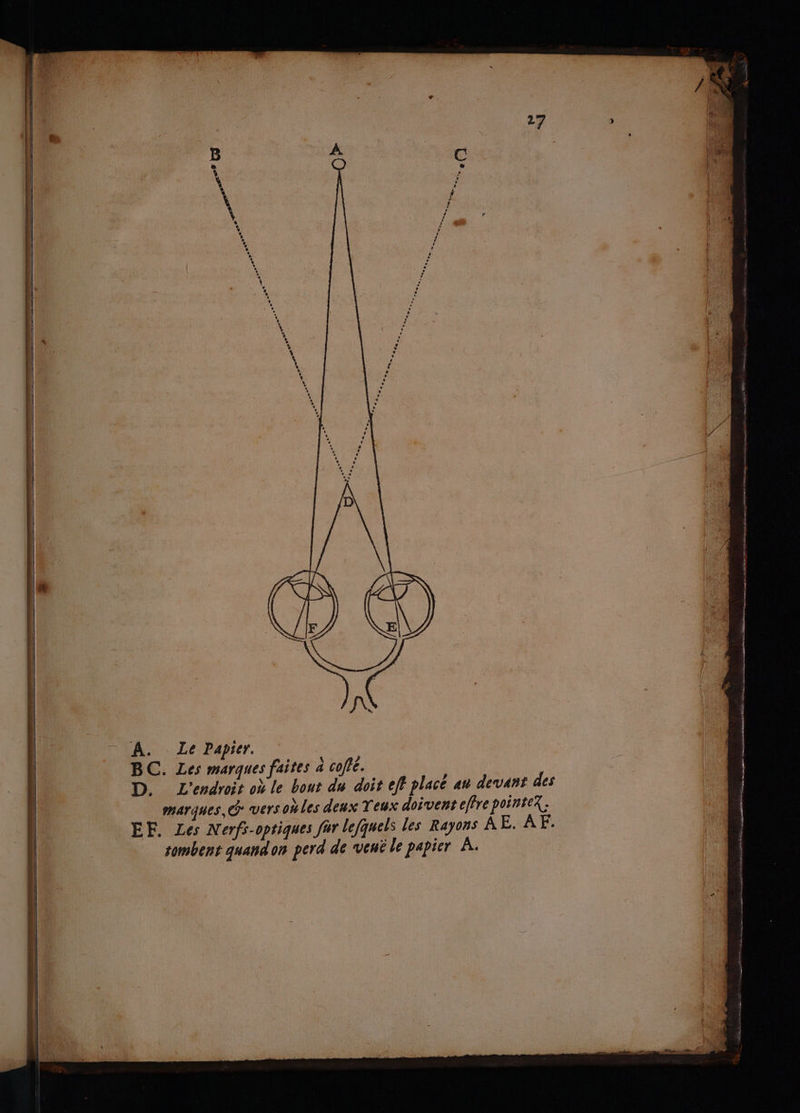 27
B A C
D
F E
A. Le Papier.
BC. Les marques faites à coſté.
D. L'endroit où le bout du doit eſt placé au devant des
marques, & vers où les deux Yeux doivent eſtre pointez.
EF. Les Nerfs-optiques ſur leſquels les Rayons AE. AF.
tombent quand on perd de veuë le papier A.